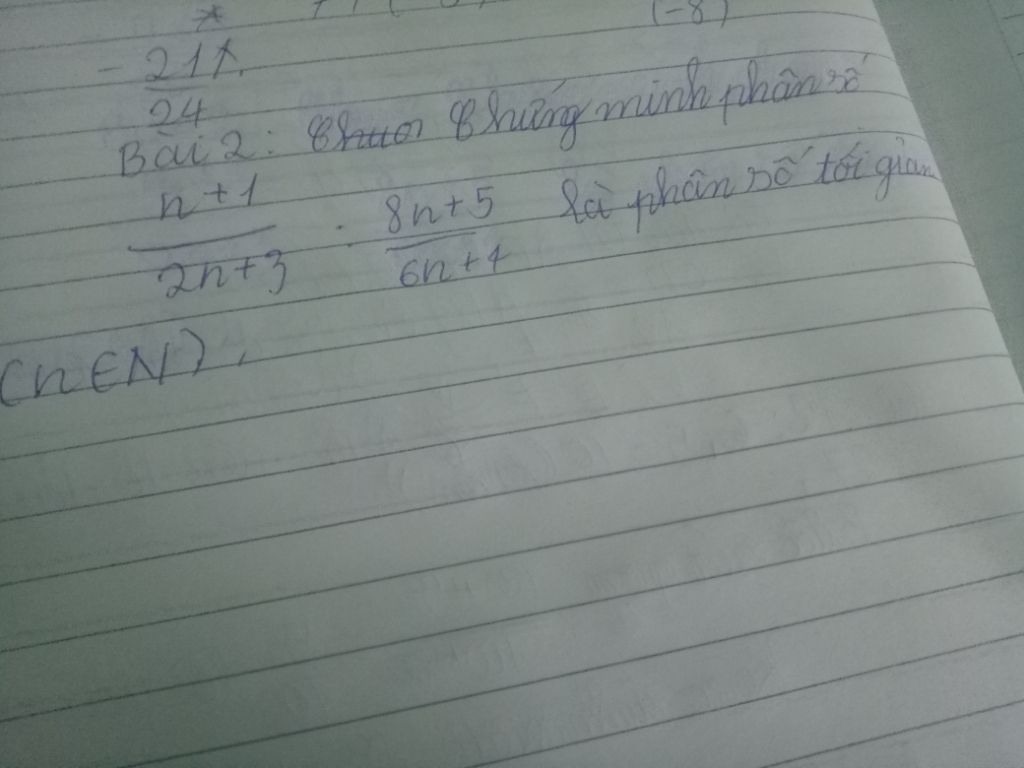 (-8)
- 21
24
Bài 2: Chứng minh phân số
n+1 / 2n+3 ; 8n+5 / 6n+4 là phân số tối giản
(n∈N).